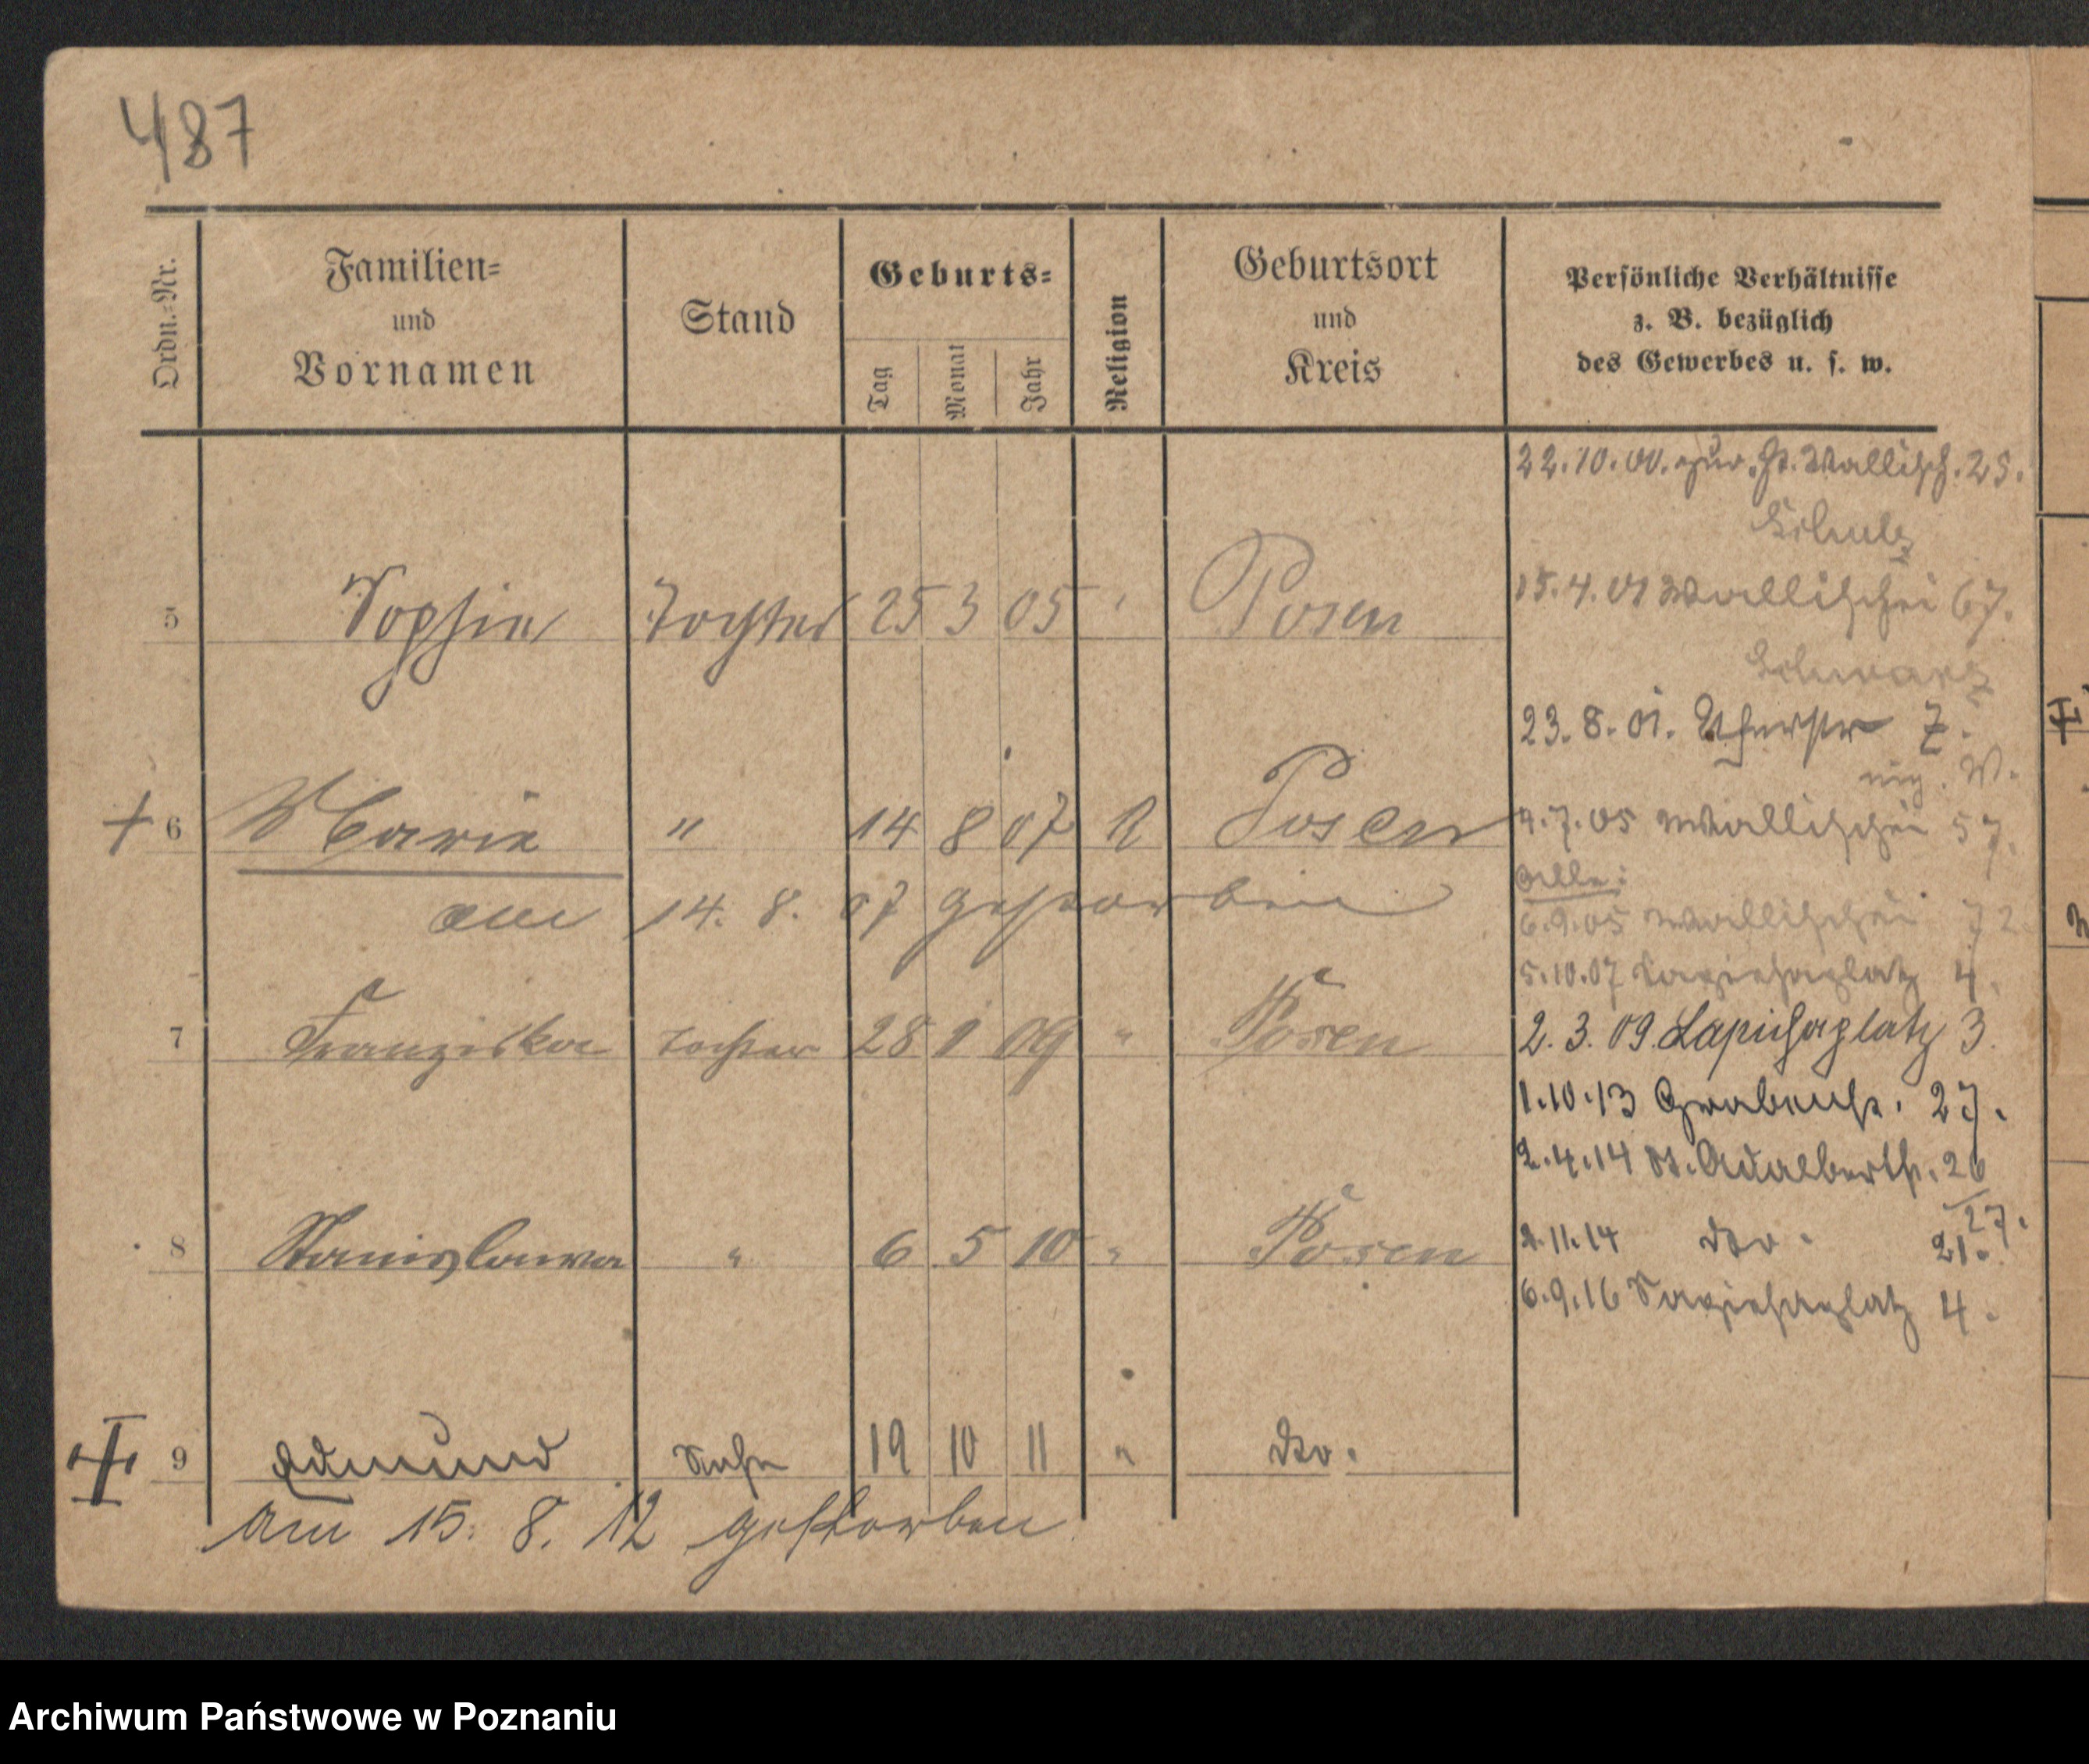 487
Ordn.-Nr.
Familien-
und
Vornamen
Stand
Geburts-
Tag
Monat
Jahr
Religion
Geburtsort
und
Kreis
Persönliche Verhältnisse
z. B. bezüglich
des Gewerbes u. s. w.
22.10.00. zur. St. Wallisch. 25.
Schulz
5 Sophie Tochter 25 3 05 " Posen
15.4.01 Wallischei 67.
Schwarz
23.8.01. Uferstr 7.
W.
+ 6 Marie " 14 8 07 R Posen
9.7.05 Wallischei 57.
Alle:
am 14. 8. 07 gestorben
6.9.05 Wallischei 72
5.10.07 Sapiehaplatz 4.
7 Franziska Tochter 28 1 09 " Posen
2.3.09. Sapiehaplatz 3.
1.10.13 Grabenstr. 27.
2.4.14 St. Adalbertstr. 26
27.
8 Stanislawa " 6 5 10 " Posen
2.11.14 do. 21.
6.9.16 Sapiehaplatz 4.
9 Edmund Sohn 19 10 11 " do.
am 15. 8. 12 gestorben
Archiwum Państwowe w Poznaniu